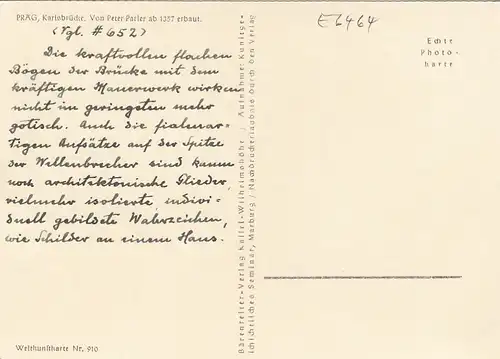 PRAG, Karlsbrücke. Von Peter Parler ab 1357 erbaut.
(Vgl. # 652)
Die kraftvollen flachen
Bögen der Brücke mit dem
kräftigen Mauerwerk wirken
nicht im geringsten mehr
gotisch. Auch die fialenar-
tigen Aufsätze auf der Spitze
der Wellenbrecher sind kaum
noch architektonische Glieder,
vielmehr isolierte indivi-
duell gebildete Wahrzeichen,
wie Schilder an einem Haus.
Weltkunstkarte Nr. 910
Bärenreiter-Verlag Kassel-Wilhelmshöhe / Aufnahme: Kunstge-
schichtliches Seminar, Marburg / Nachdruckerlaubnis durch den Verlag
E6464
Echte
Photo-
karte